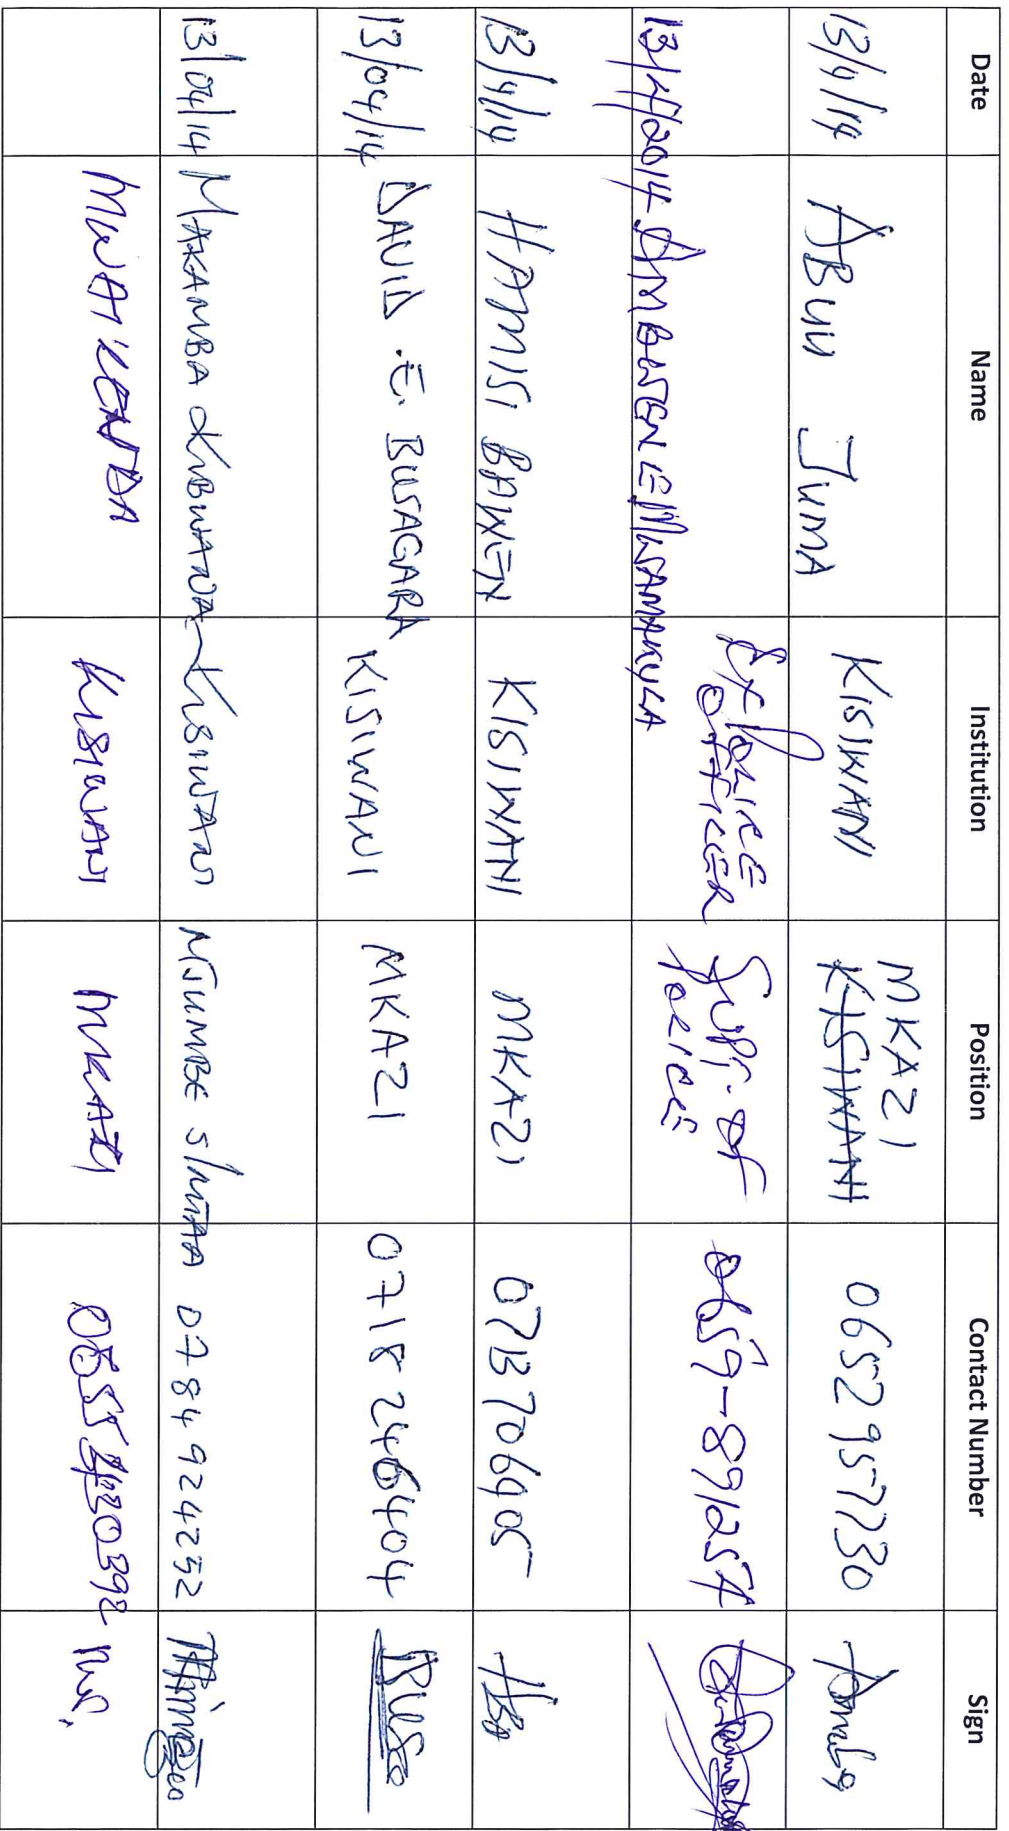 Date Name Institution Position Contact Number Sign
13/4/14 ABUU JUMA KISIWANI MKAZI KISIWANI 0652957730
13/4/2014 AMBWENE MWAMAKULA Ex Police OFFICER Supt. of Police 0659-891254
13/4/14 HAMISI KISIWANI MKAZI 0713706905 HBA
13/04/14 DAVID .E. BUSAGARA KISIWANI MKAZI 0718246404
13/04/14 MAKAMBA KISIWANI MJUMBE S/MTAA 0784924232
MWATKENDA KISIWANI MKAZI